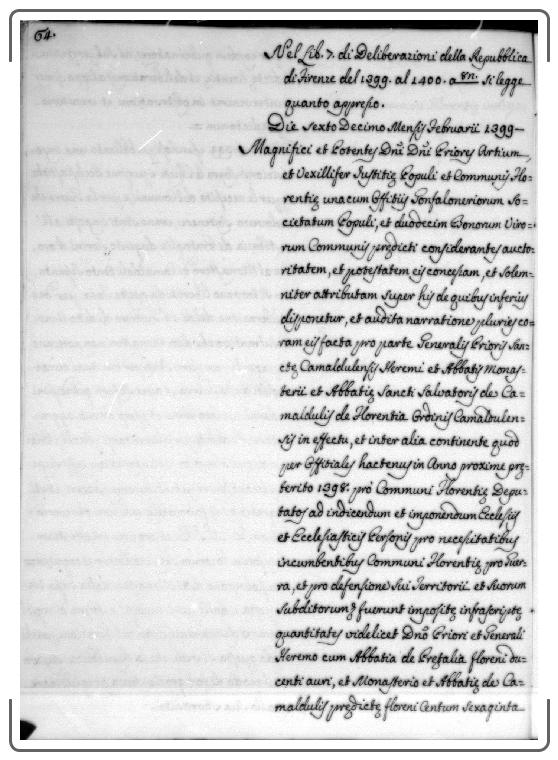 64.
Nel Lib. 7. di Deliberazioni della Repubblica
di Firenze del 1399. al 1400. a 8n. si legge
quanto appresso.
Die Sexto Decimo Mensis Februarii 1399-
Magnifici et Potentes Dni Dni Priores Artium,
et Vexillifer Justitię Populi et Communis Flo=
rentię unacum Offitiis Gonfaloneriorum So=
cietatum Populi, et duodecim Bonorum Viro=
rum Communis prędicti considerantes aucto=
ritatem, et potestatem eis concessam, et solem=
niter attributam super his de quibus inferius
disponetur, et audita narratione pluries co=
ram eis facta pro parte Generalis Prioris San=
ctę Camaldulensis Heremi et Abbatis Monas=
terii et Abbatię Sancti Salvatoris de Ca=
maldulis de Florentia Ordinis Camaldulen=
sis in effectu, et inter alia continente quod
per Offitiales hactenus in Anno proxime prę=
terito 1398. pro Communi Florentię Depu=
tatos ad indicendum et imponendum Ecclesiis
et Ecclesiasticis Personis pro necessitatibus
incumbentibus Communi Florentię pro Guer=
ra, et pro defensione Sui Territorii et Suorum
Subditorumq fuerunt impositę infrascriptę
quantitates videlicet Dno Priori et Generali
Heremo cum Abbatia de Pretalia floreni du=
centi auri, et Monasterio et Abbatię de Ca=
maldulis prędictę floreni Centum Sexaginta